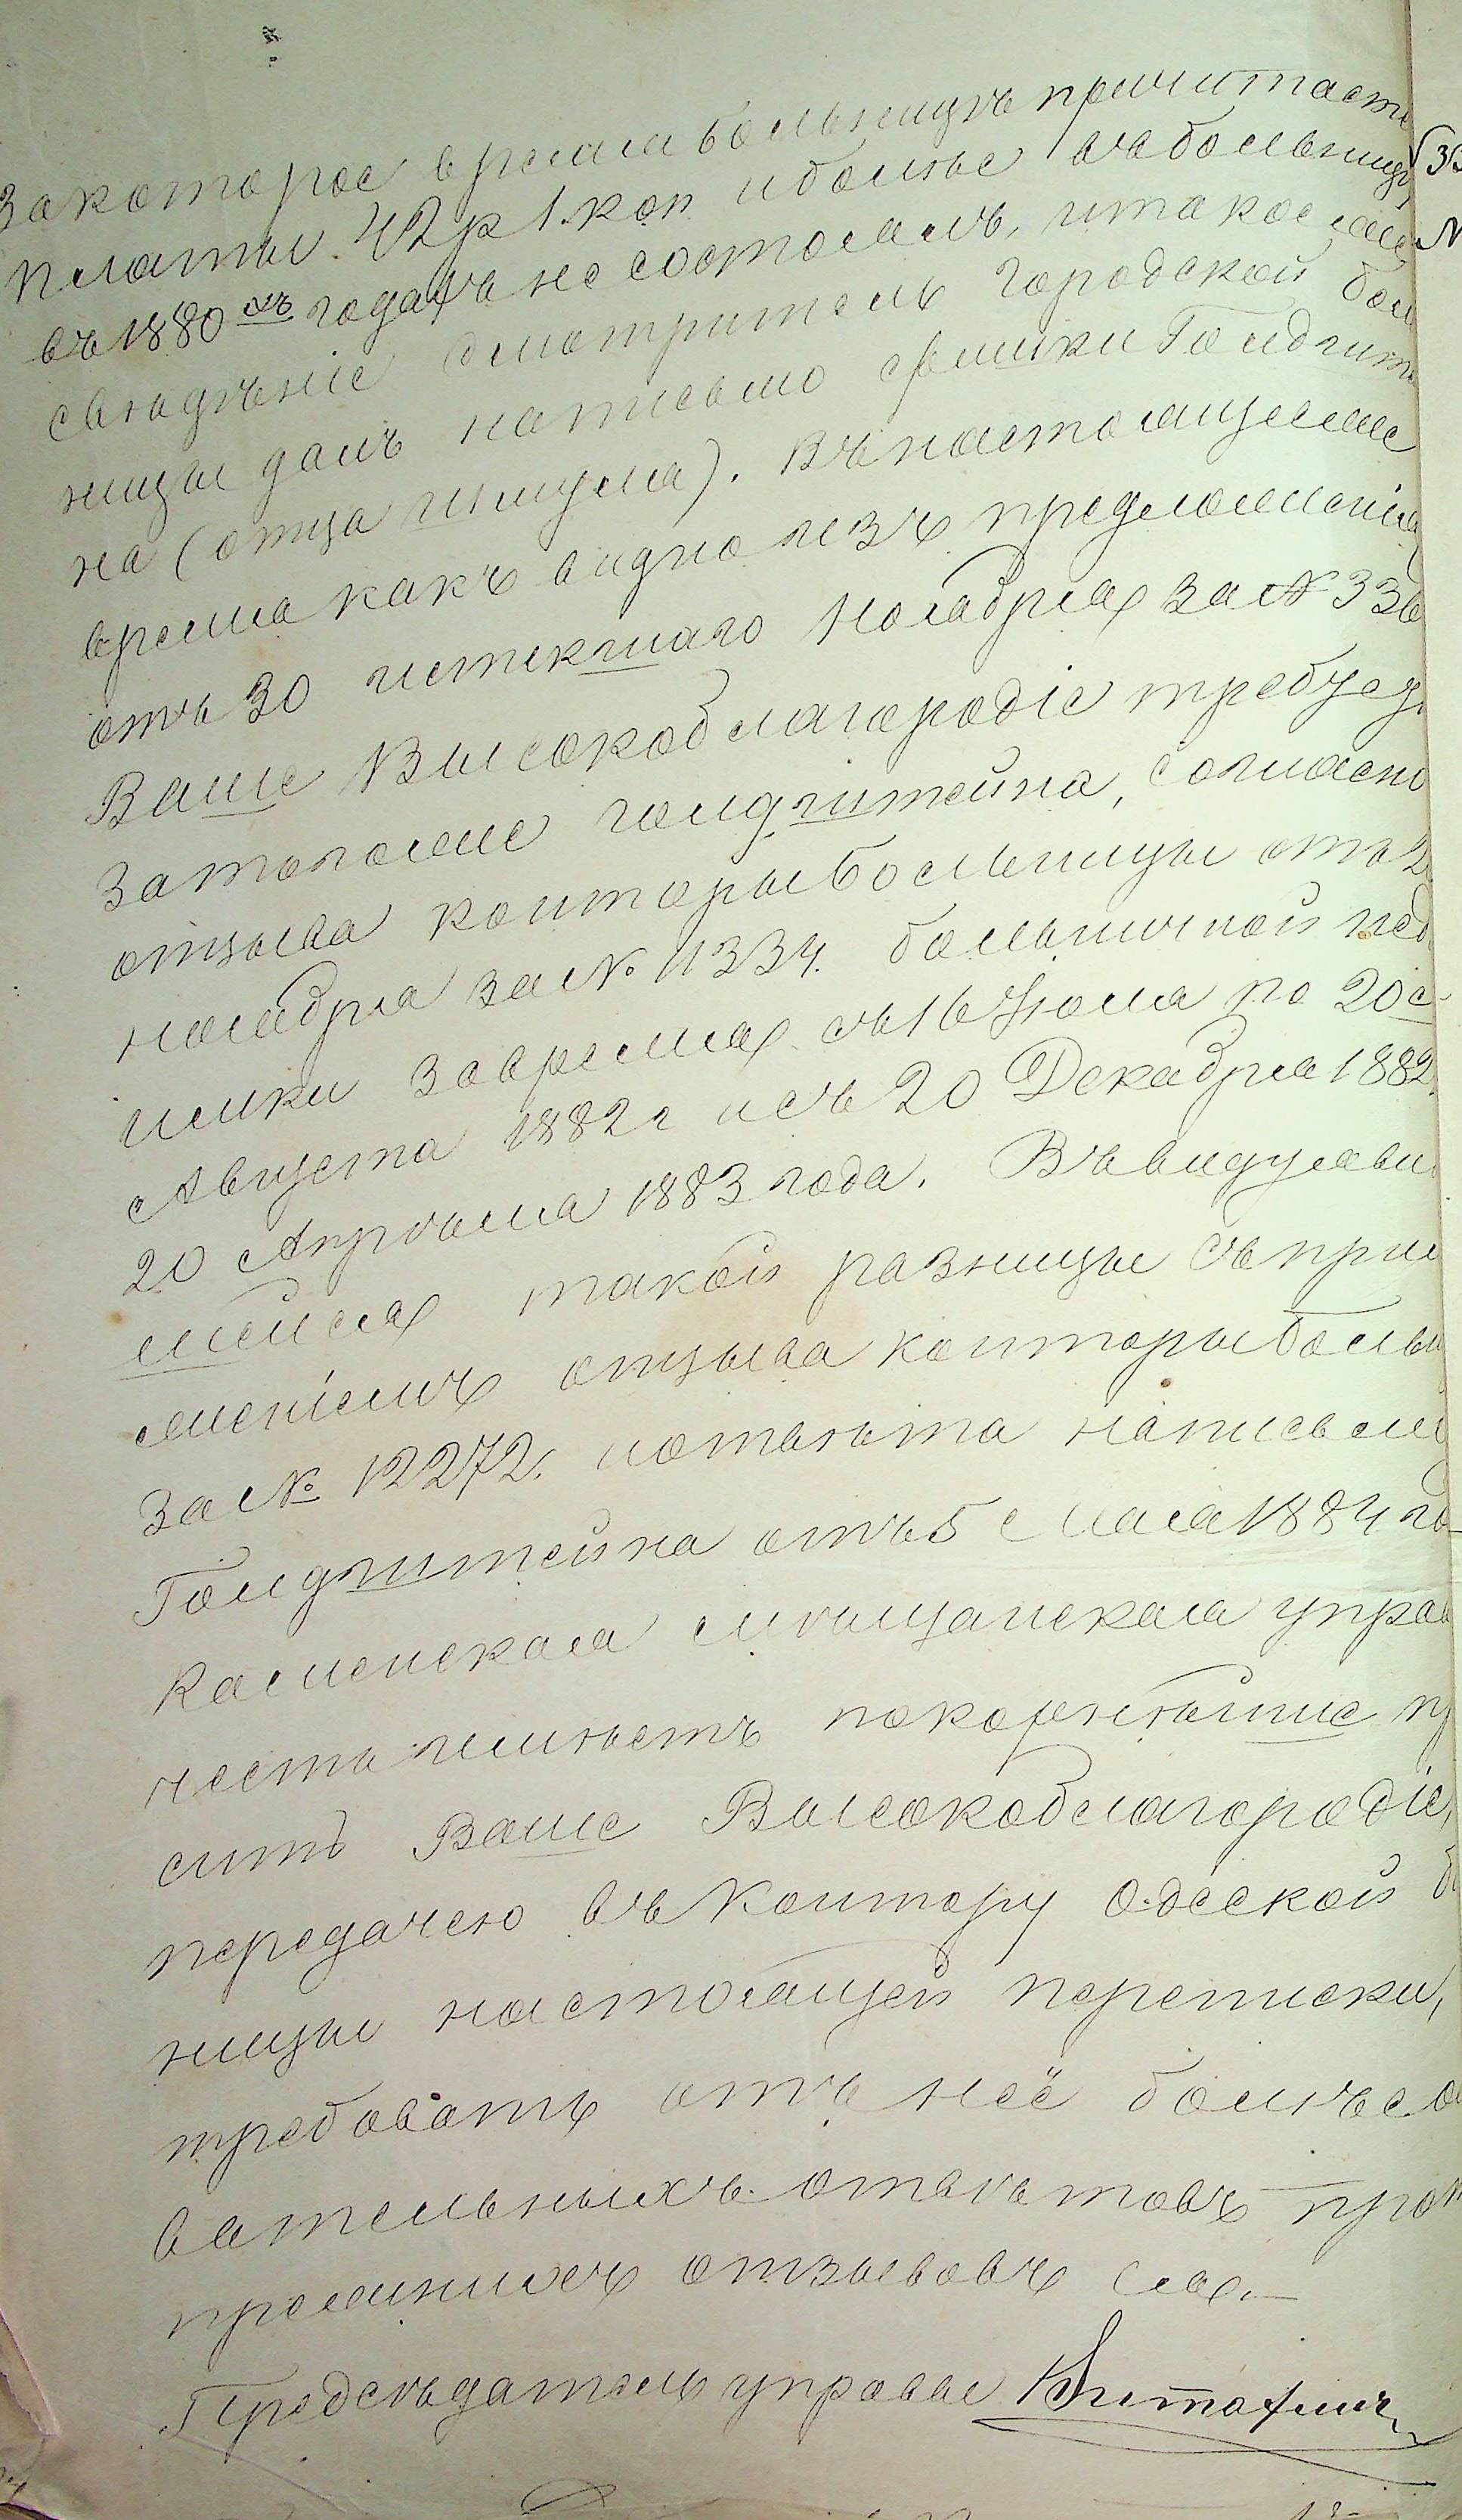 за которое время больницѣ причитаетс
платы 42 р 1. коп и болѣе въ больниц
въ 1880хъ годахъ не состоялъ, и такое
свѣдѣніе смотритель Городской бол
ницы далъ на письмо Фишки Голдшт
на (отца Шмуля). Въ настоящее
время какъ видно изъ предложенія
отъ 30 истекшаго Ноября за № 336
Ваше Высокоблагородіе требуе
за того же Голдштейна, согласно
отзыва конторы больницы отъ 2
ноября за № 11334. больничной нед
имки за время съ 16 Іюля по 20
Августа 1882 г и съ 20 Декабря 1882
20 Апрѣля 1883 года. Въ виду яви
шейся такой разницы съ прил
женіемъ отзыва конторы больн
за № 12272. и отвѣта на письмо
Голдштейна отъ 5 Мая 1884 го
Каменская мѣщанская управ
честь имѣетъ покорнѣйше п
сить Ваше Высокоблагородіе,
передачею въ контору Одеской б
ницы настоящей переписки,
требовать отъ неё болѣе о
вательныхъ отвѣтовъ про
прежнихъ отзывовъ ея.
Предсѣдатель управы